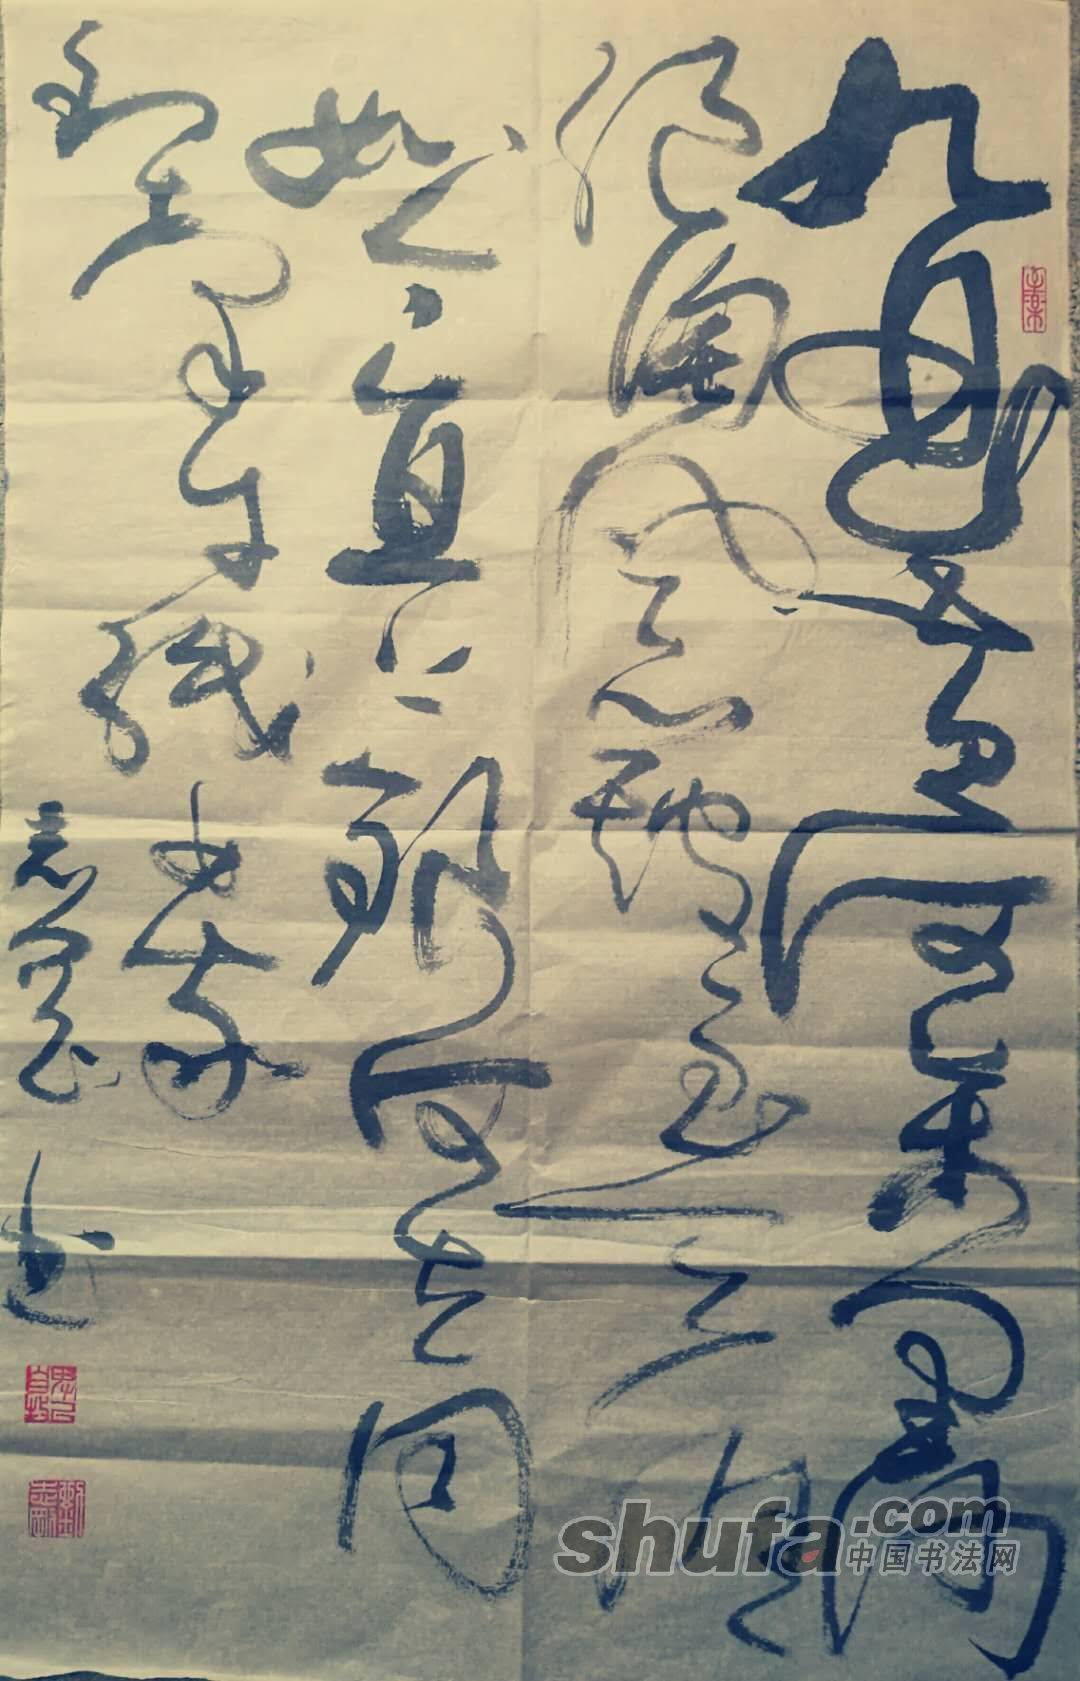 九曲黄河万里沙
浪淘风簸自天涯
如今直上银河去同
到牵牛织女家
志强书
shufa.com
中国书法网